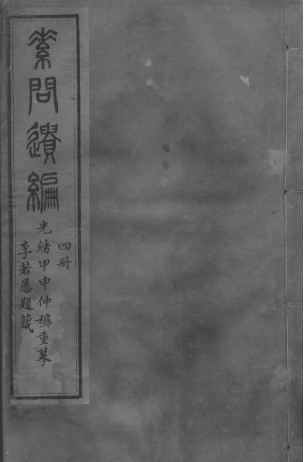 素問遺編
四册
光緒甲申仲穐重摹
李若愚題籤